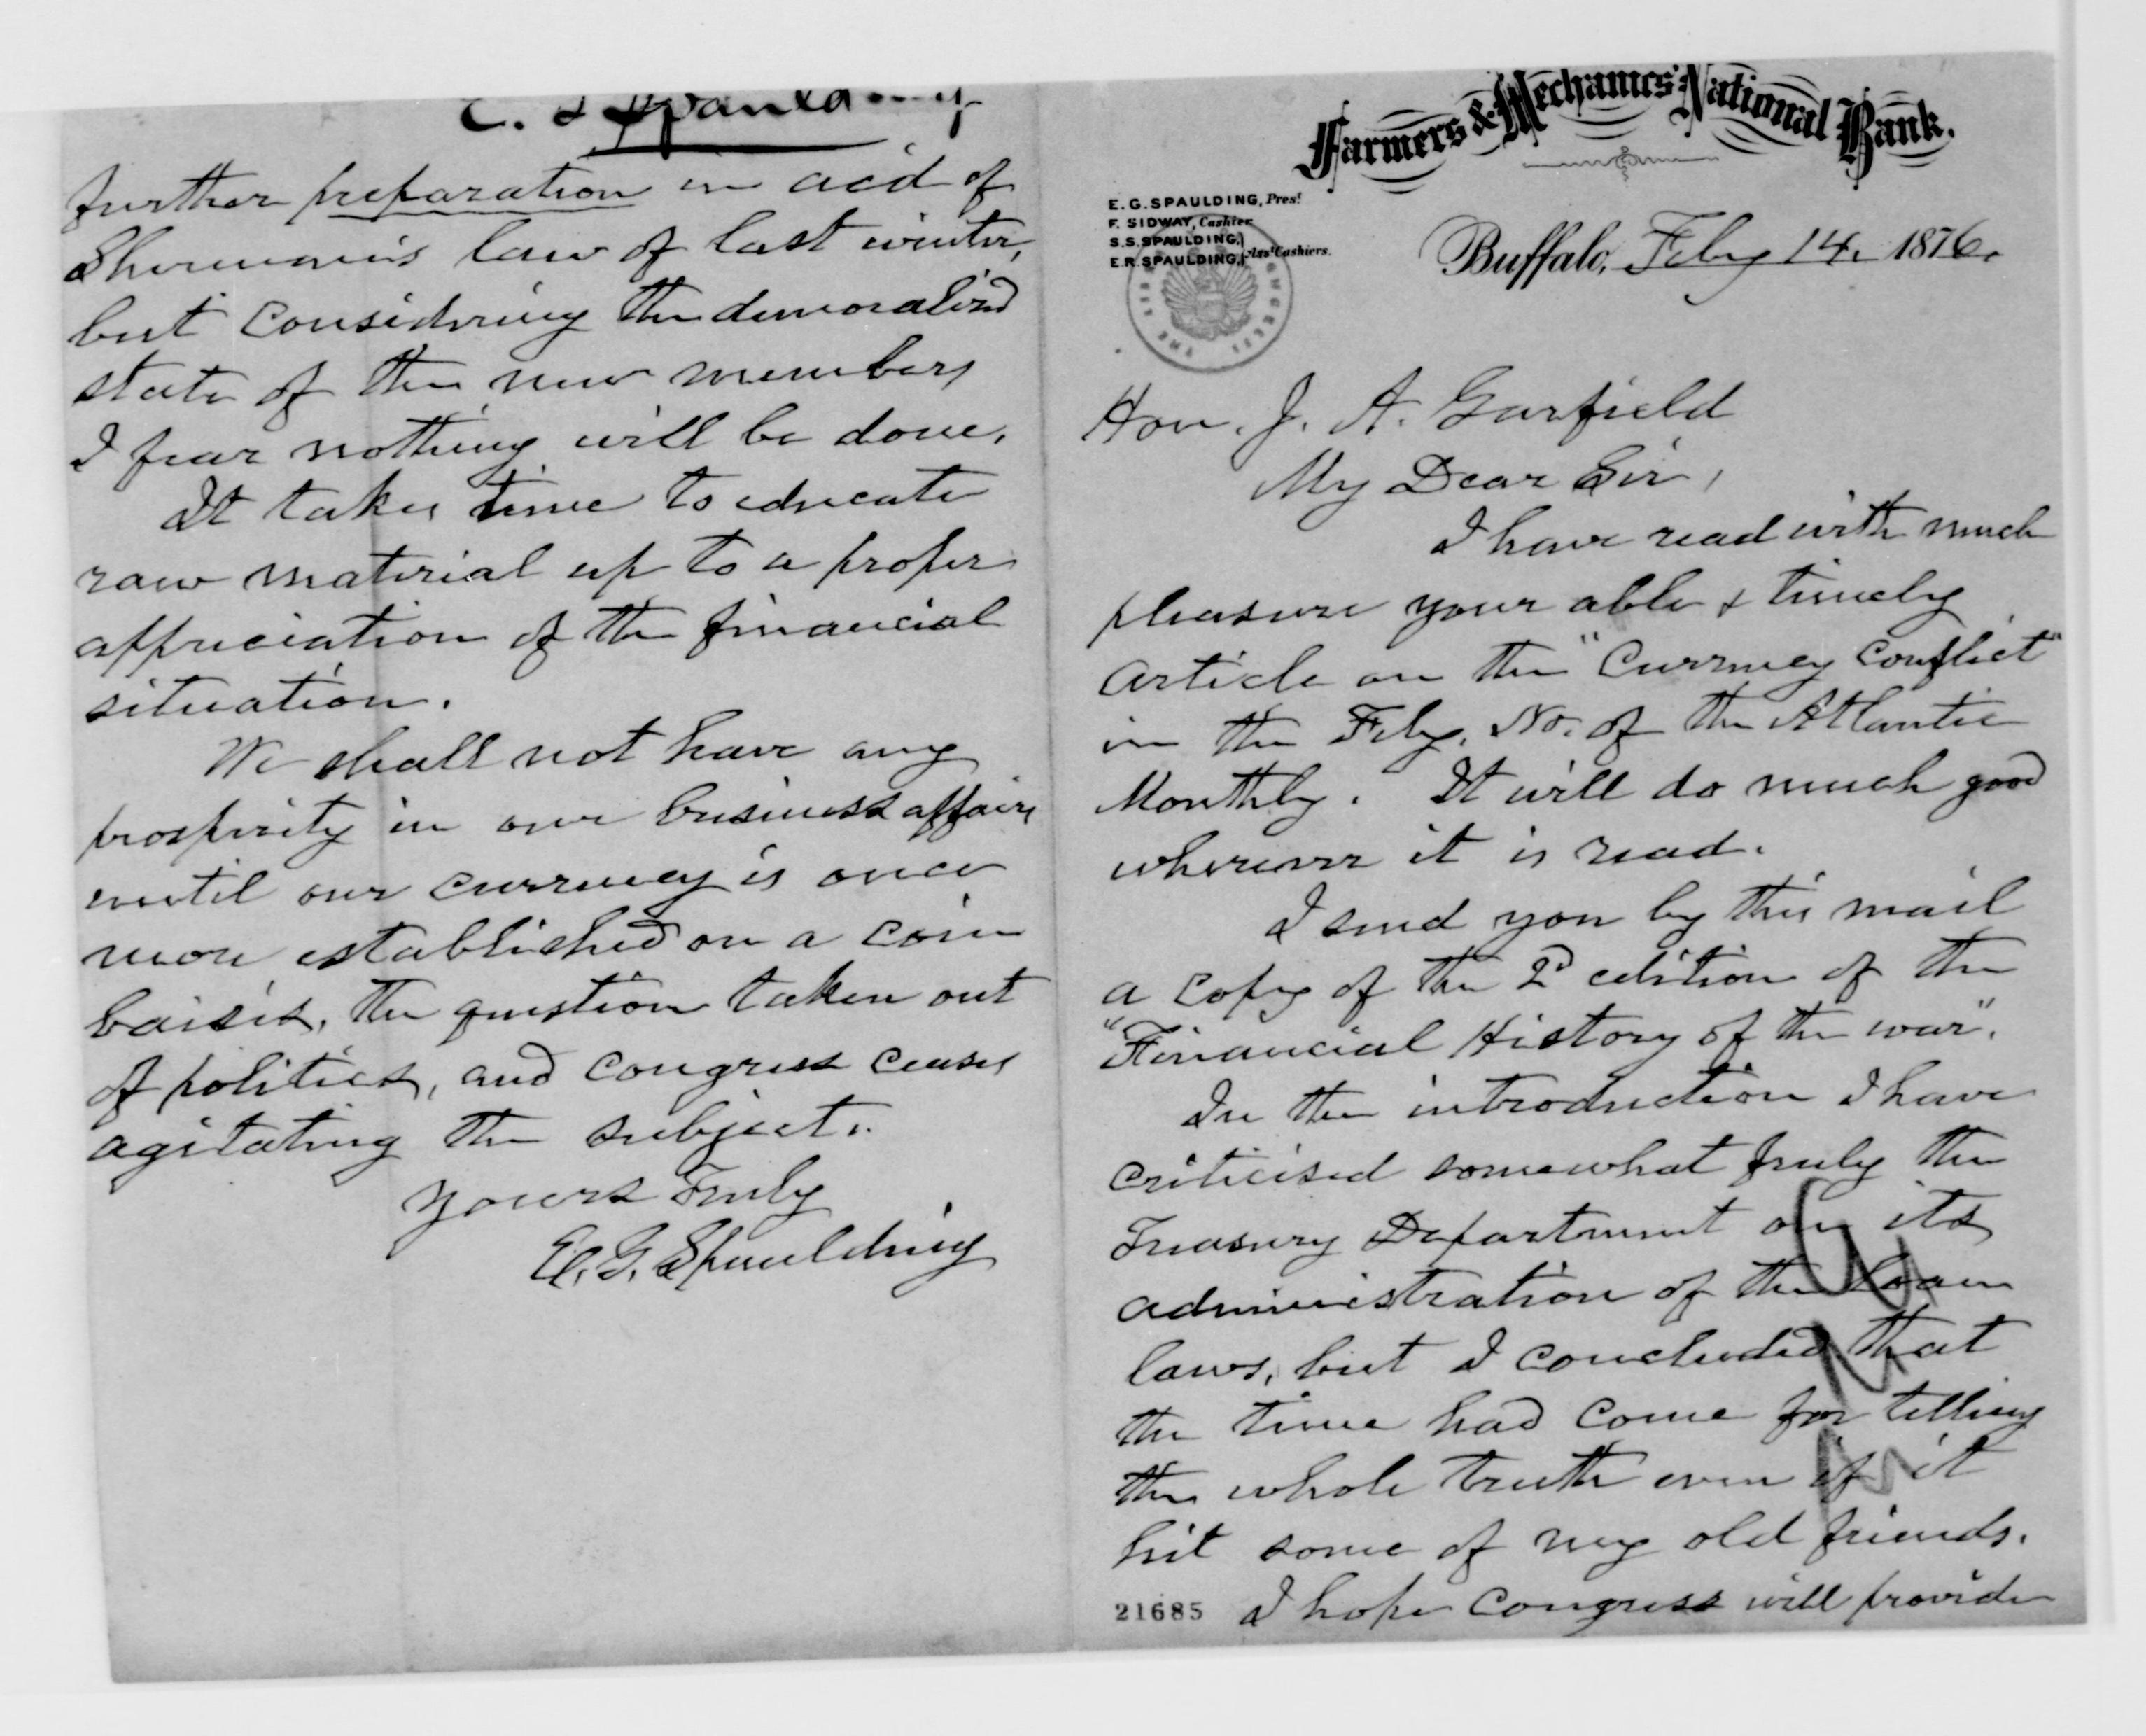 Farmers & Mechanics' National Bank.
E. G. SPAULDING, Prest
F. SIDWAY, Cashier
S. S. SPAULDING,
E. R. SPAULDING, Asst Cashiers.
Buffalo, Feby 14. 1876.
Hon. J. A. Garfield
My Dear Sir,
I have read with much
pleasure your able & timely
article on the "Currency Conflict"
in the Feby. No. of the Atlantic
Monthly. It will do much good
wherever it is read.
I send you by this mail
a copy of the 2d edition of the
"Financial History of the war".
In the introduction I have
criticised somewhat freely the
Treasury Department on its
administration of the loan
laws, but I concluded that
the time had come for telling
the whole truth even if it
hit some of my old friends.
21685 I hope Congress will provide
E. G Spaulding
further preparation in aid of
Sherman's law of last winter,
but considering the demoralized
state of the new members
I fear nothing will be done.
It takes time to educate
raw material up to a proper
appreciation of the financial
situation.
We shall not have any
prosperity in our business affairs
until our currency is once
more established on a coin
baisis, the question taken out
of politics, and Congress ceases
agitating the subject.
Yours Truly
E. G. Spaulding